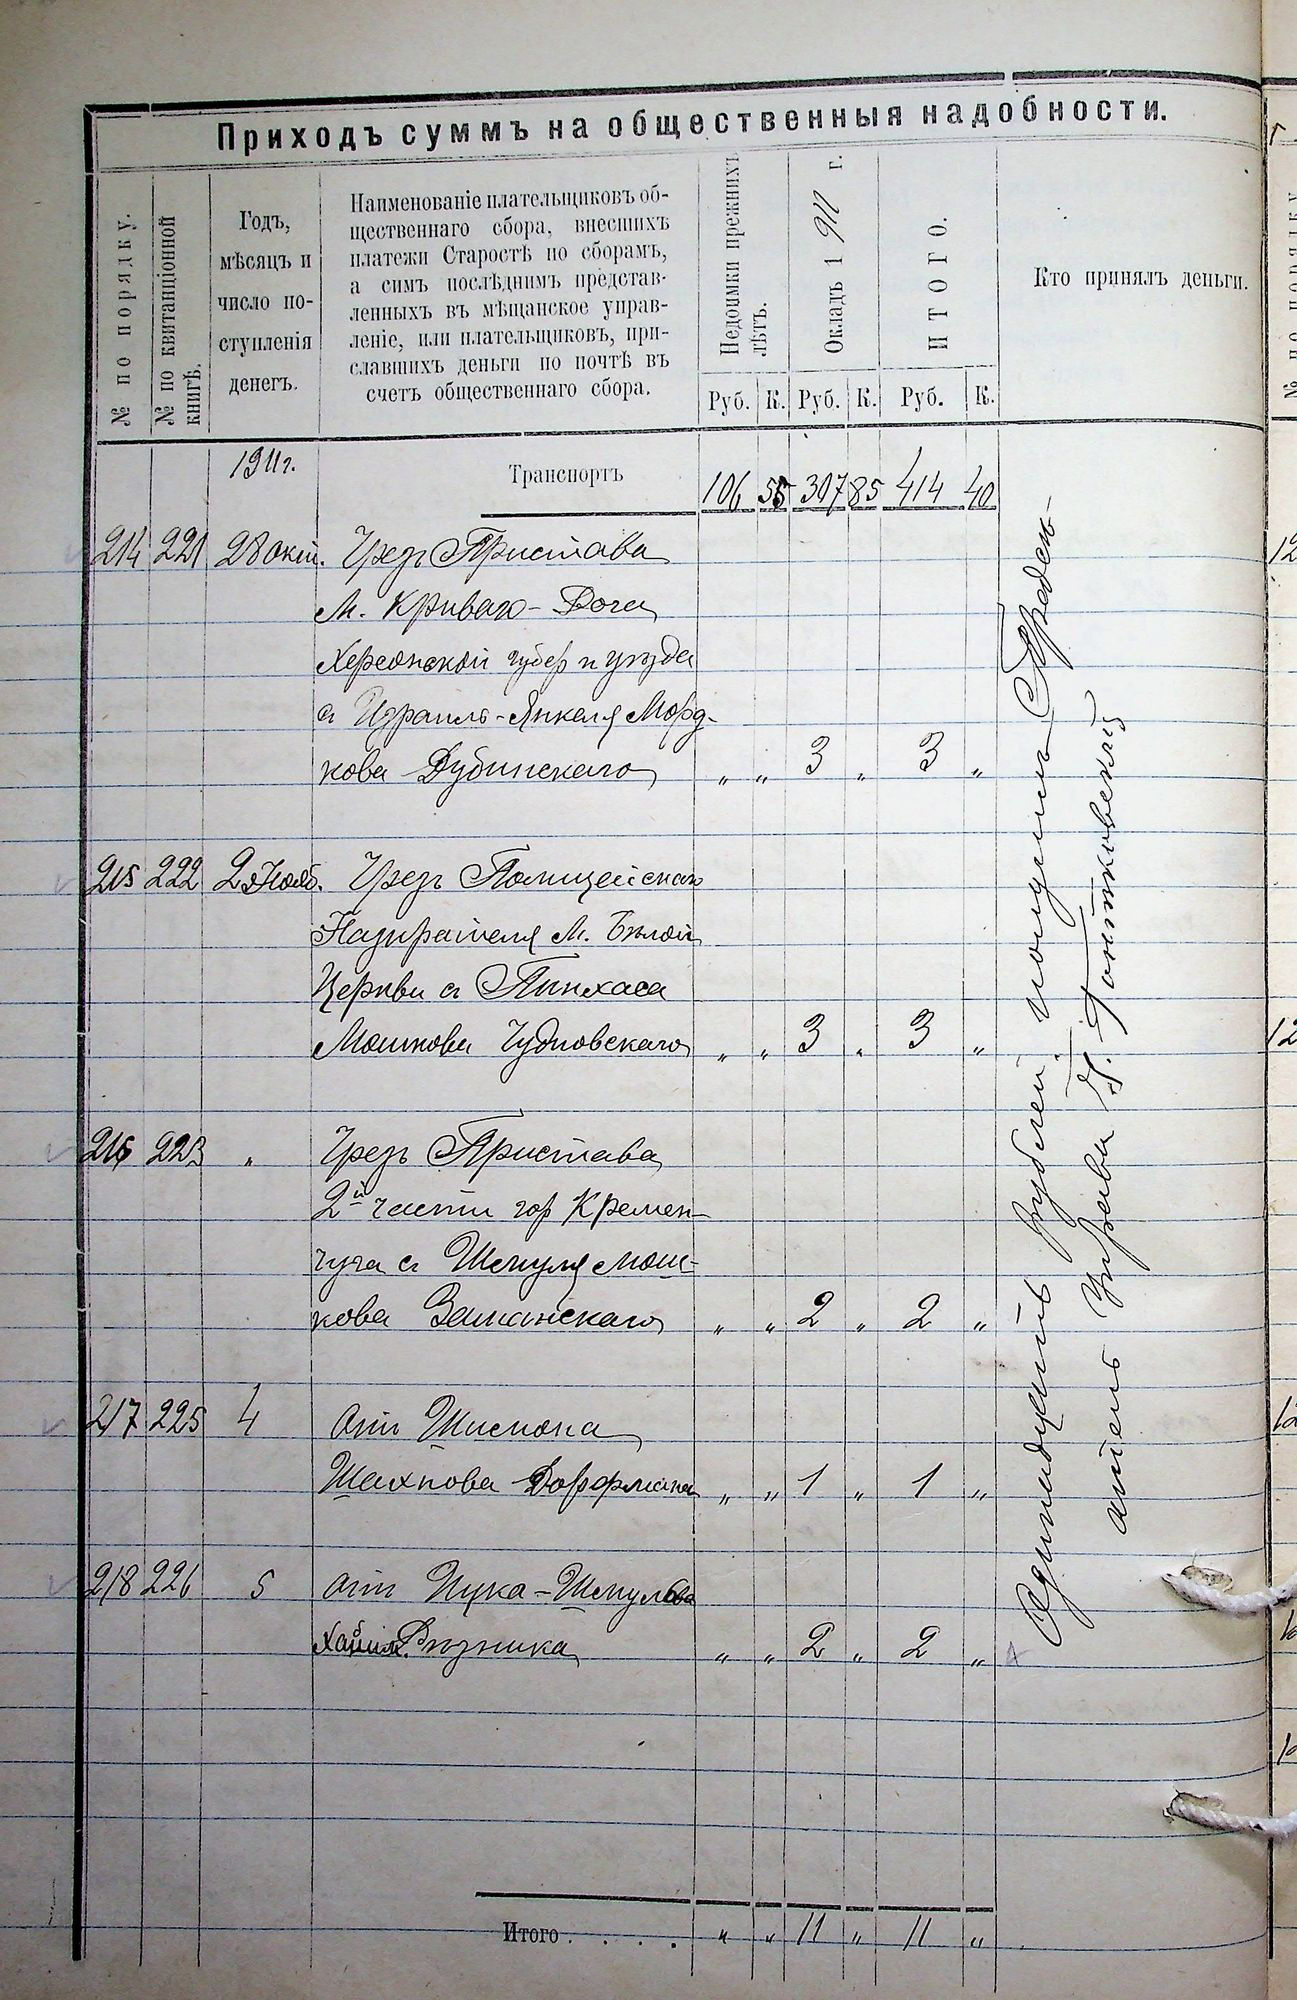 Приходъ суммъ на общественныя надобности.
№ по порядку.
№ по квитанціонной книгѣ.
Годъ,
мѣсяцъ и
число по-
ступленія
денегъ.
Наименованіе плательщиковъ об-
щественнаго сбора, внесшихъ
платежи Старостѣ по сборамъ,
а симъ послѣднимъ представ-
ленныхъ въ мѣщанское управ-
леніе, или плательщиковъ, при-
славшихъ деньги по почтѣ въ
счетъ общественнаго сбора.
Недоимки прежнихъ лѣтъ.
Окладъ 1911 г.
ИТОГО.
Кто принялъ деньги.
Руб. К. Руб. К. Руб. К.
1911г. Транспортъ 106 55 307 85 414 40
214 221 28 окт. Чрезъ Пристава
м. Криваго-Рога
Херсонской губер и уѣзда
съ Израиль-Янкеля Морд-
кова Дубинскаго " " 3 " 3 "
215 222 2 Нояб. Чрезъ Полицейскаго
Надзирателя м. Бѣлой
Церкви съ Пинхаса
Мошкова Чудновскаго " " 3 " 3 "
216 223 " Чрезъ Пристава
2й части гор Кремен-
чуга съ Шмуля Мош-
кова Заманскаго " " 2 " 2 "
217 225 4 Отъ Шимона
Шахнова Дорфмана " " 1 " 1 "
218 226 5 Отъ Ицка-Шмульова
Хаим. Рѣзника " " 2 " 2 "
Одинадцать рублей получилъ Предсѣ-
датель Управы
Итого . . . . " " 11 " 11 "